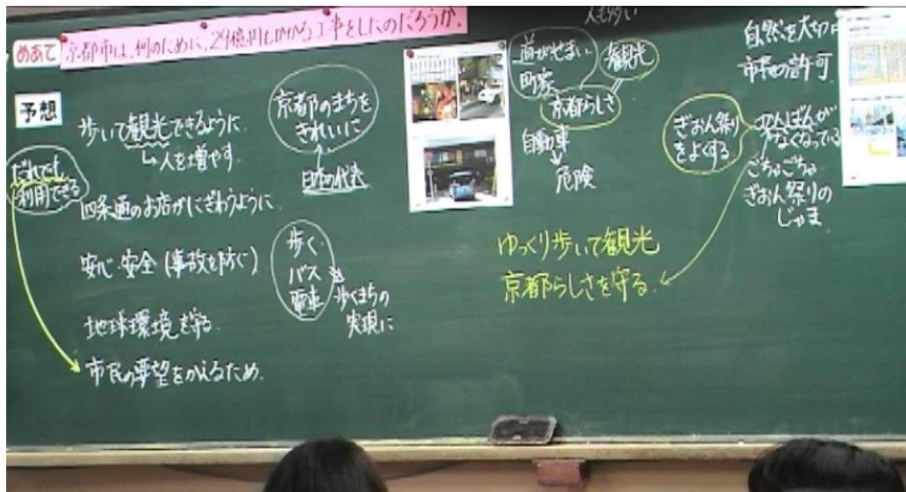 めあて
京都市は、何のために、29億円もかかる工事をしたのだろうか。
予想
歩いて観光できるように
人を増やす。
だれでも
利用できる
四条通のお店がにぎわうように
安心・安全(事故を防ぐ)
地球環境を守る。
市民の要望をかなえるため。
京都のまちを
きれいに
日本の代表
歩く
バス
電車
歩くまちの
実現に
人も多い
道がせまい。
町家
観光
京都らしさ
自動車
危険
ゆっくり歩いて観光
京都らしさを守る。
自然を大切に
市民の許可
ぎおん祭り
をよくする
かんばんが
なくなっている
ごちゃごちゃ
ぎおん祭りの
じゃま